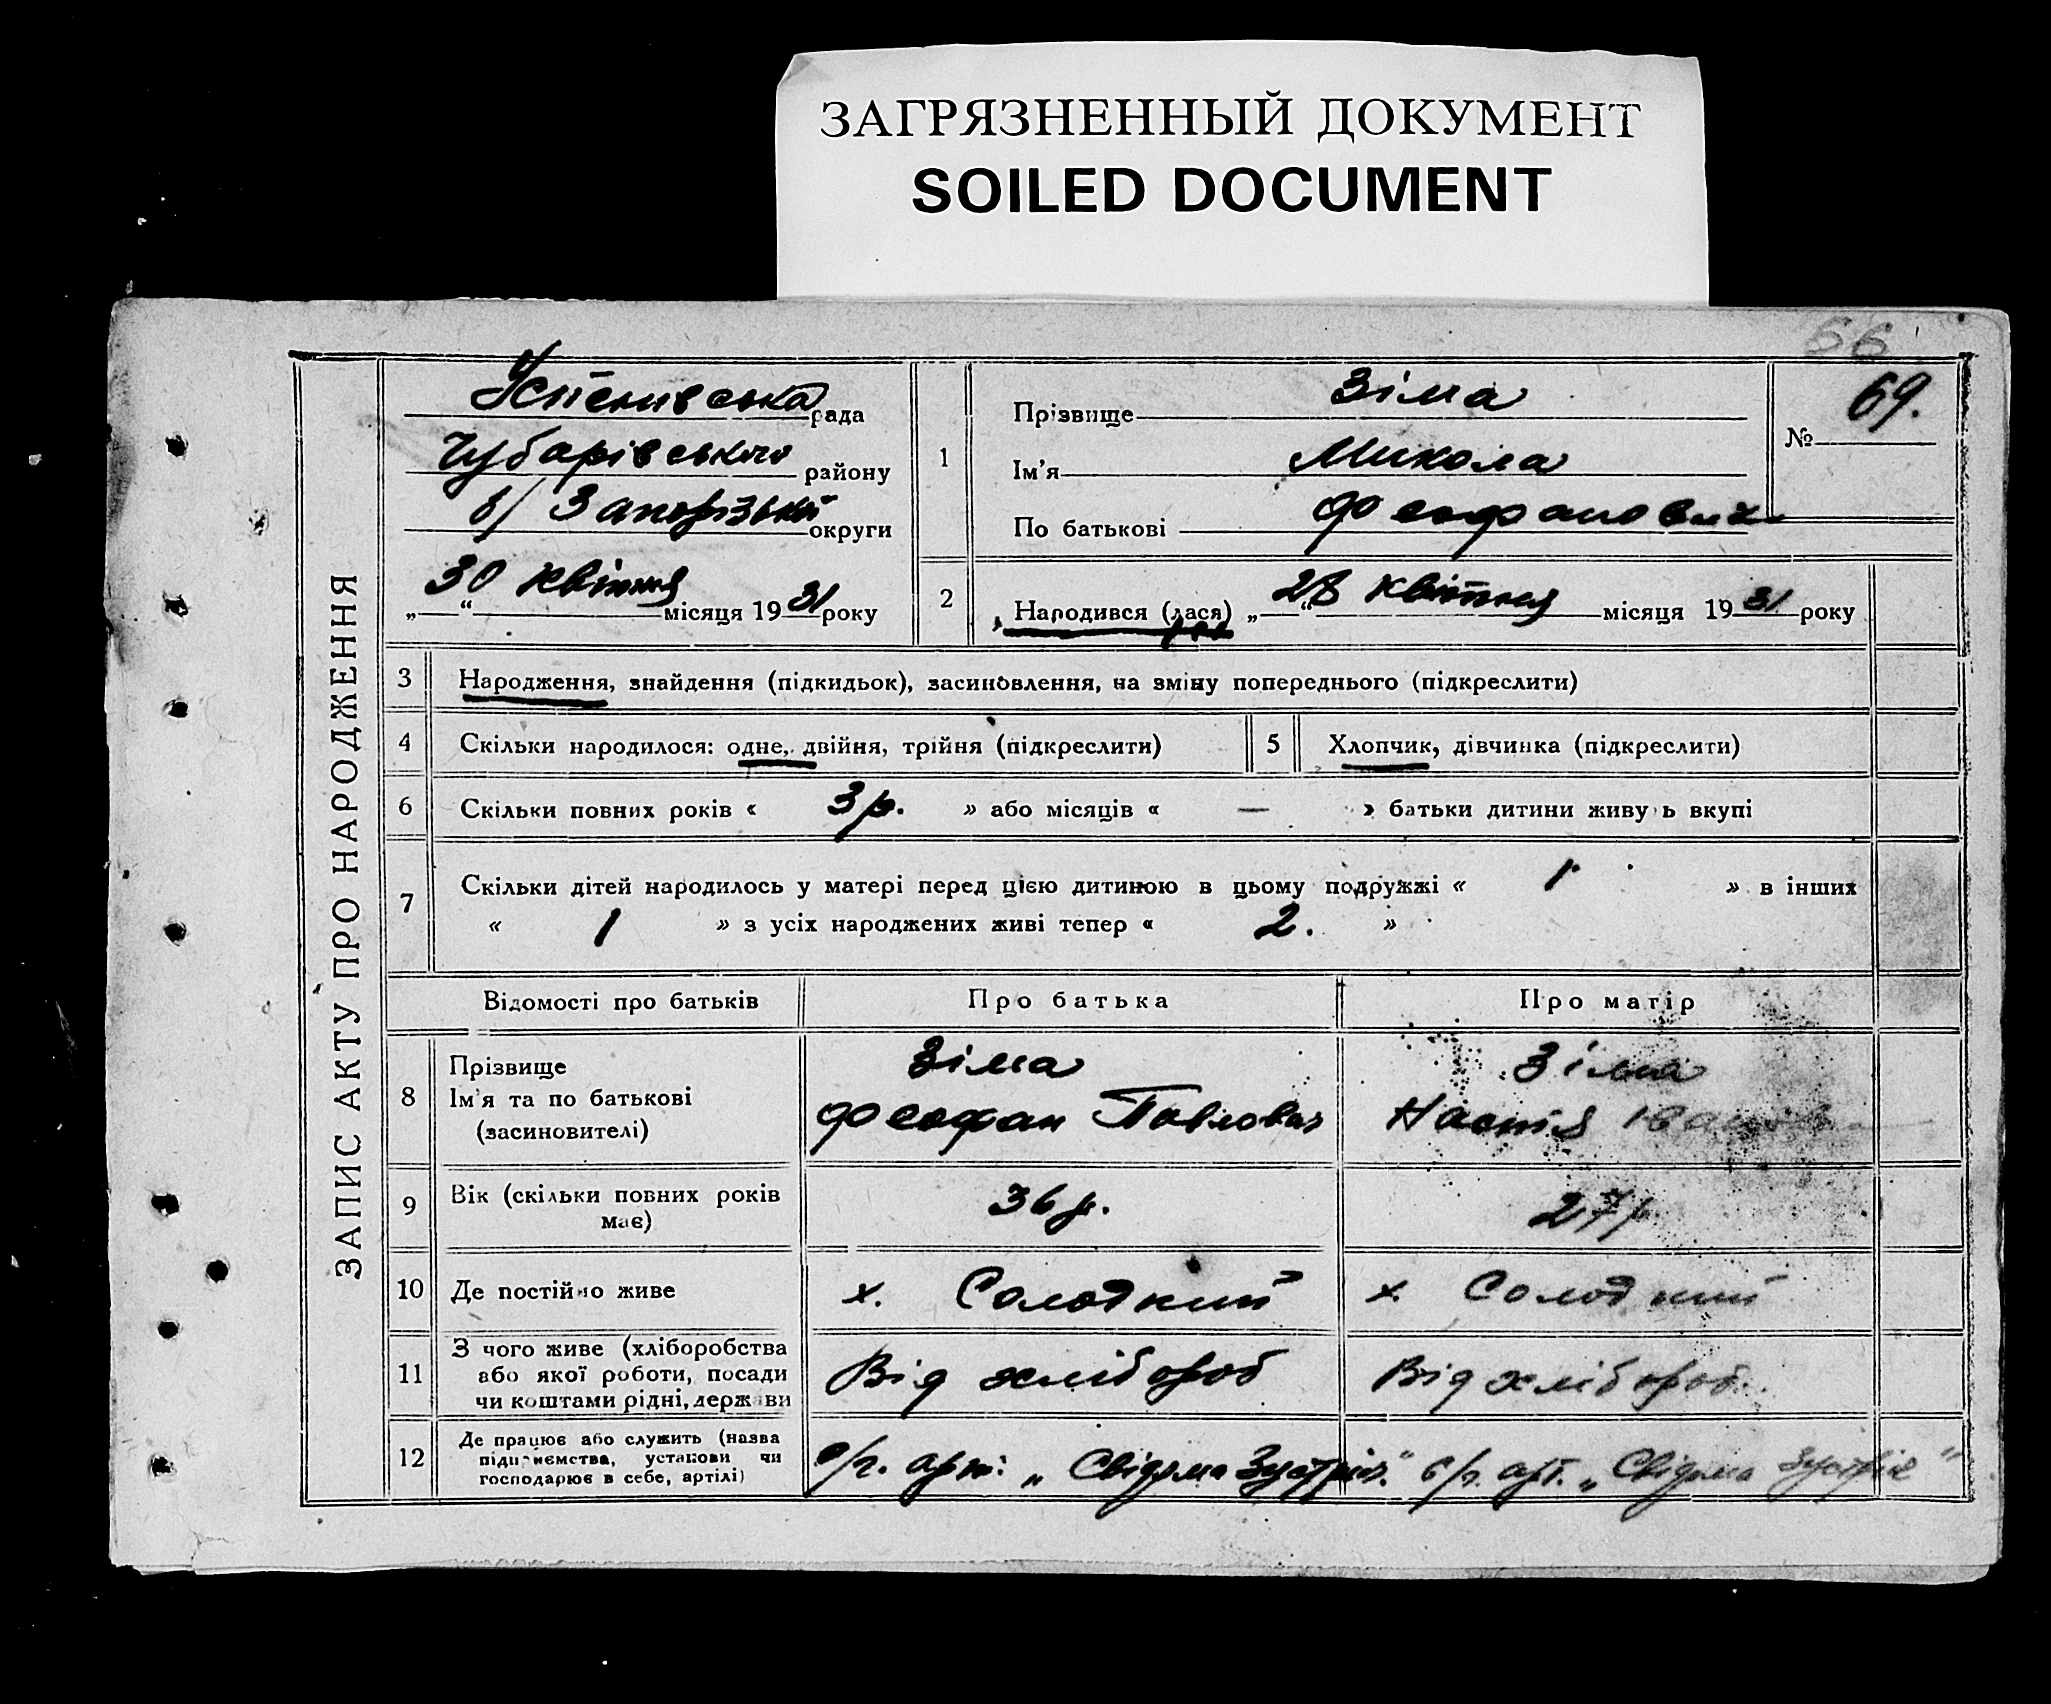 ЗАГРЯЗНЕННЫЙ ДОКУМЕНТ
SOILED DOCUMENT
66
ЗАПИС АКТУ ПРО НАРОДЖЕННЯ
Успенивська рада
Чубарівського району
б/ Запорізької округи
„30“ квітня місяця 1931 року
1
Прізвище Зіма
Ім'я Микола
По батькові Феофанович
№ 69.
2 Народився (лася) „28“ квітня місяця 1931 року
3 Народження, знайдення (підкидьок), засиновлення, на зміну попереднього (підкреслити)
4 Скільки народилося: одне, двійня, трійня (підкреслити)
5 Хлопчик, дівчинка (підкреслити)
6 Скільки повних років « 3 р. » або місяців « — » батьки дитини живу ь вкупі
7 Скільки дітей народилось у матері перед цією дитиною в цьому подружжі « 1 » в інших
« 1 » з усіх народжених живі тепер « 2. »
Відомості про батьків Про батька Про матір
8 Прізвище
Ім'я та по батькові
(засиновителі)
Зіма
Феофан Павлович
Зіма
Настя
9 Вік (скільки повних років
має)
36 р.
27 р
10 Де постійно живе х. Солодкий х. Солодкий
11 З чого живе (хліборобства
або якої роботи, посади
чи коштами рідні, держави
Від хлібороб
Від хлібороб.
12 Де працює або служить (назва
підприємства, установи чи
господарює в себе, артілі)
с/г. арт: „Свідома Зустріч."
с/г. арт. „Свідома Зустріч"